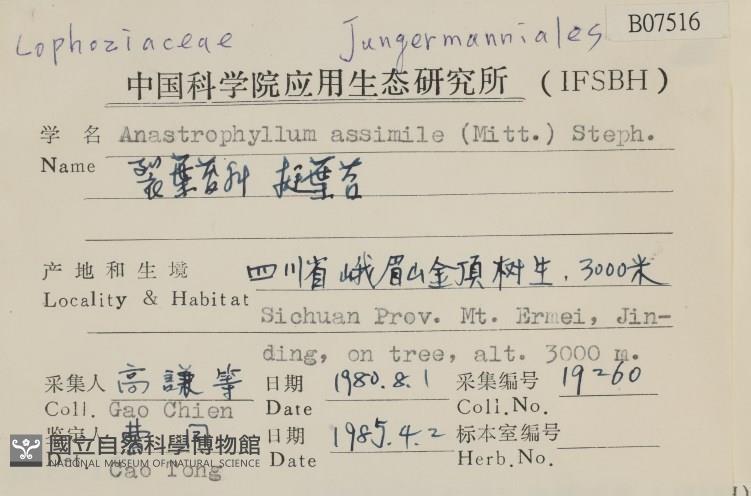 Lophoziaceae Jungermanniales B07516
中国科学院应用生态研究所 (IFSBH)
学名 Anastrophyllum assimile (Mitt.) Steph.
Name 裂葉苔科 挺葉苔
产地和生境 四川省峨眉山金頂树生. 3000米
Locality & Habitat Sichuan Prov. Mt. Ermei, Jin-
ding, on tree, alt. 3000 m.
采集人 高謙等 日期 1980.8.1 采集编号 19260
Coll. Gao Chien Date Coll.No.
鉴定人 曹同 日期 1985.4.2 标本室编号
Det. Cao Tong Date Herb.No.
國立自然科學博物館
NATIONAL MUSEUM OF NATURAL SCIENCE